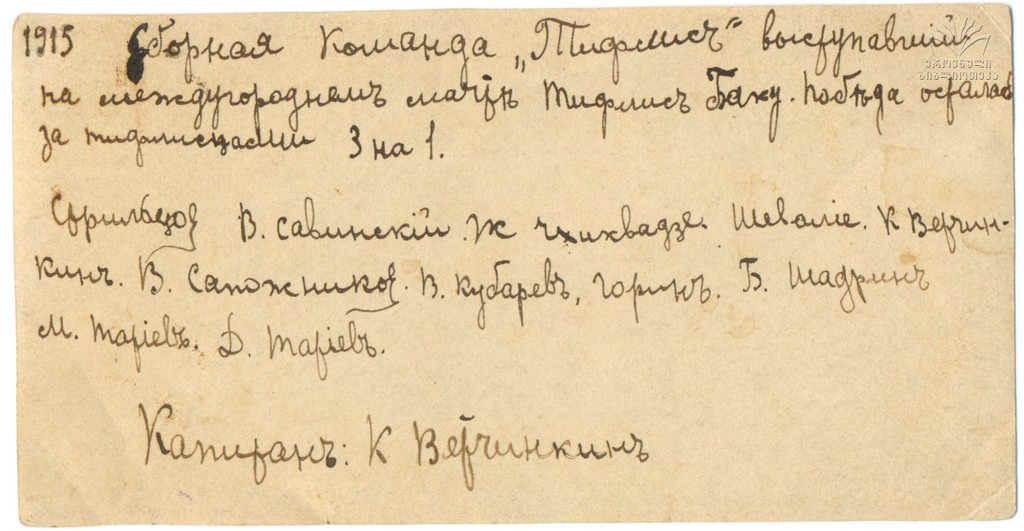 1915 Сборная Команда „Тифлисъ" выступавшій
на междугородномъ матчѣ Тифлисъ Баку. Побѣда осталась
за тифлисцами 3 на 1.
Стрильцов В. Савинскій. Ж Чхиквадзе. Шеваліе. К Верчин-
кинъ. В. Сапожников. В. Кубаревъ, Горинъ. Б. Шадринъ
М. Таріевъ. Д. Таріевъ.
Капитанъ: К Верчинкинъ
ეროვნული
ბიბლიოთეკა